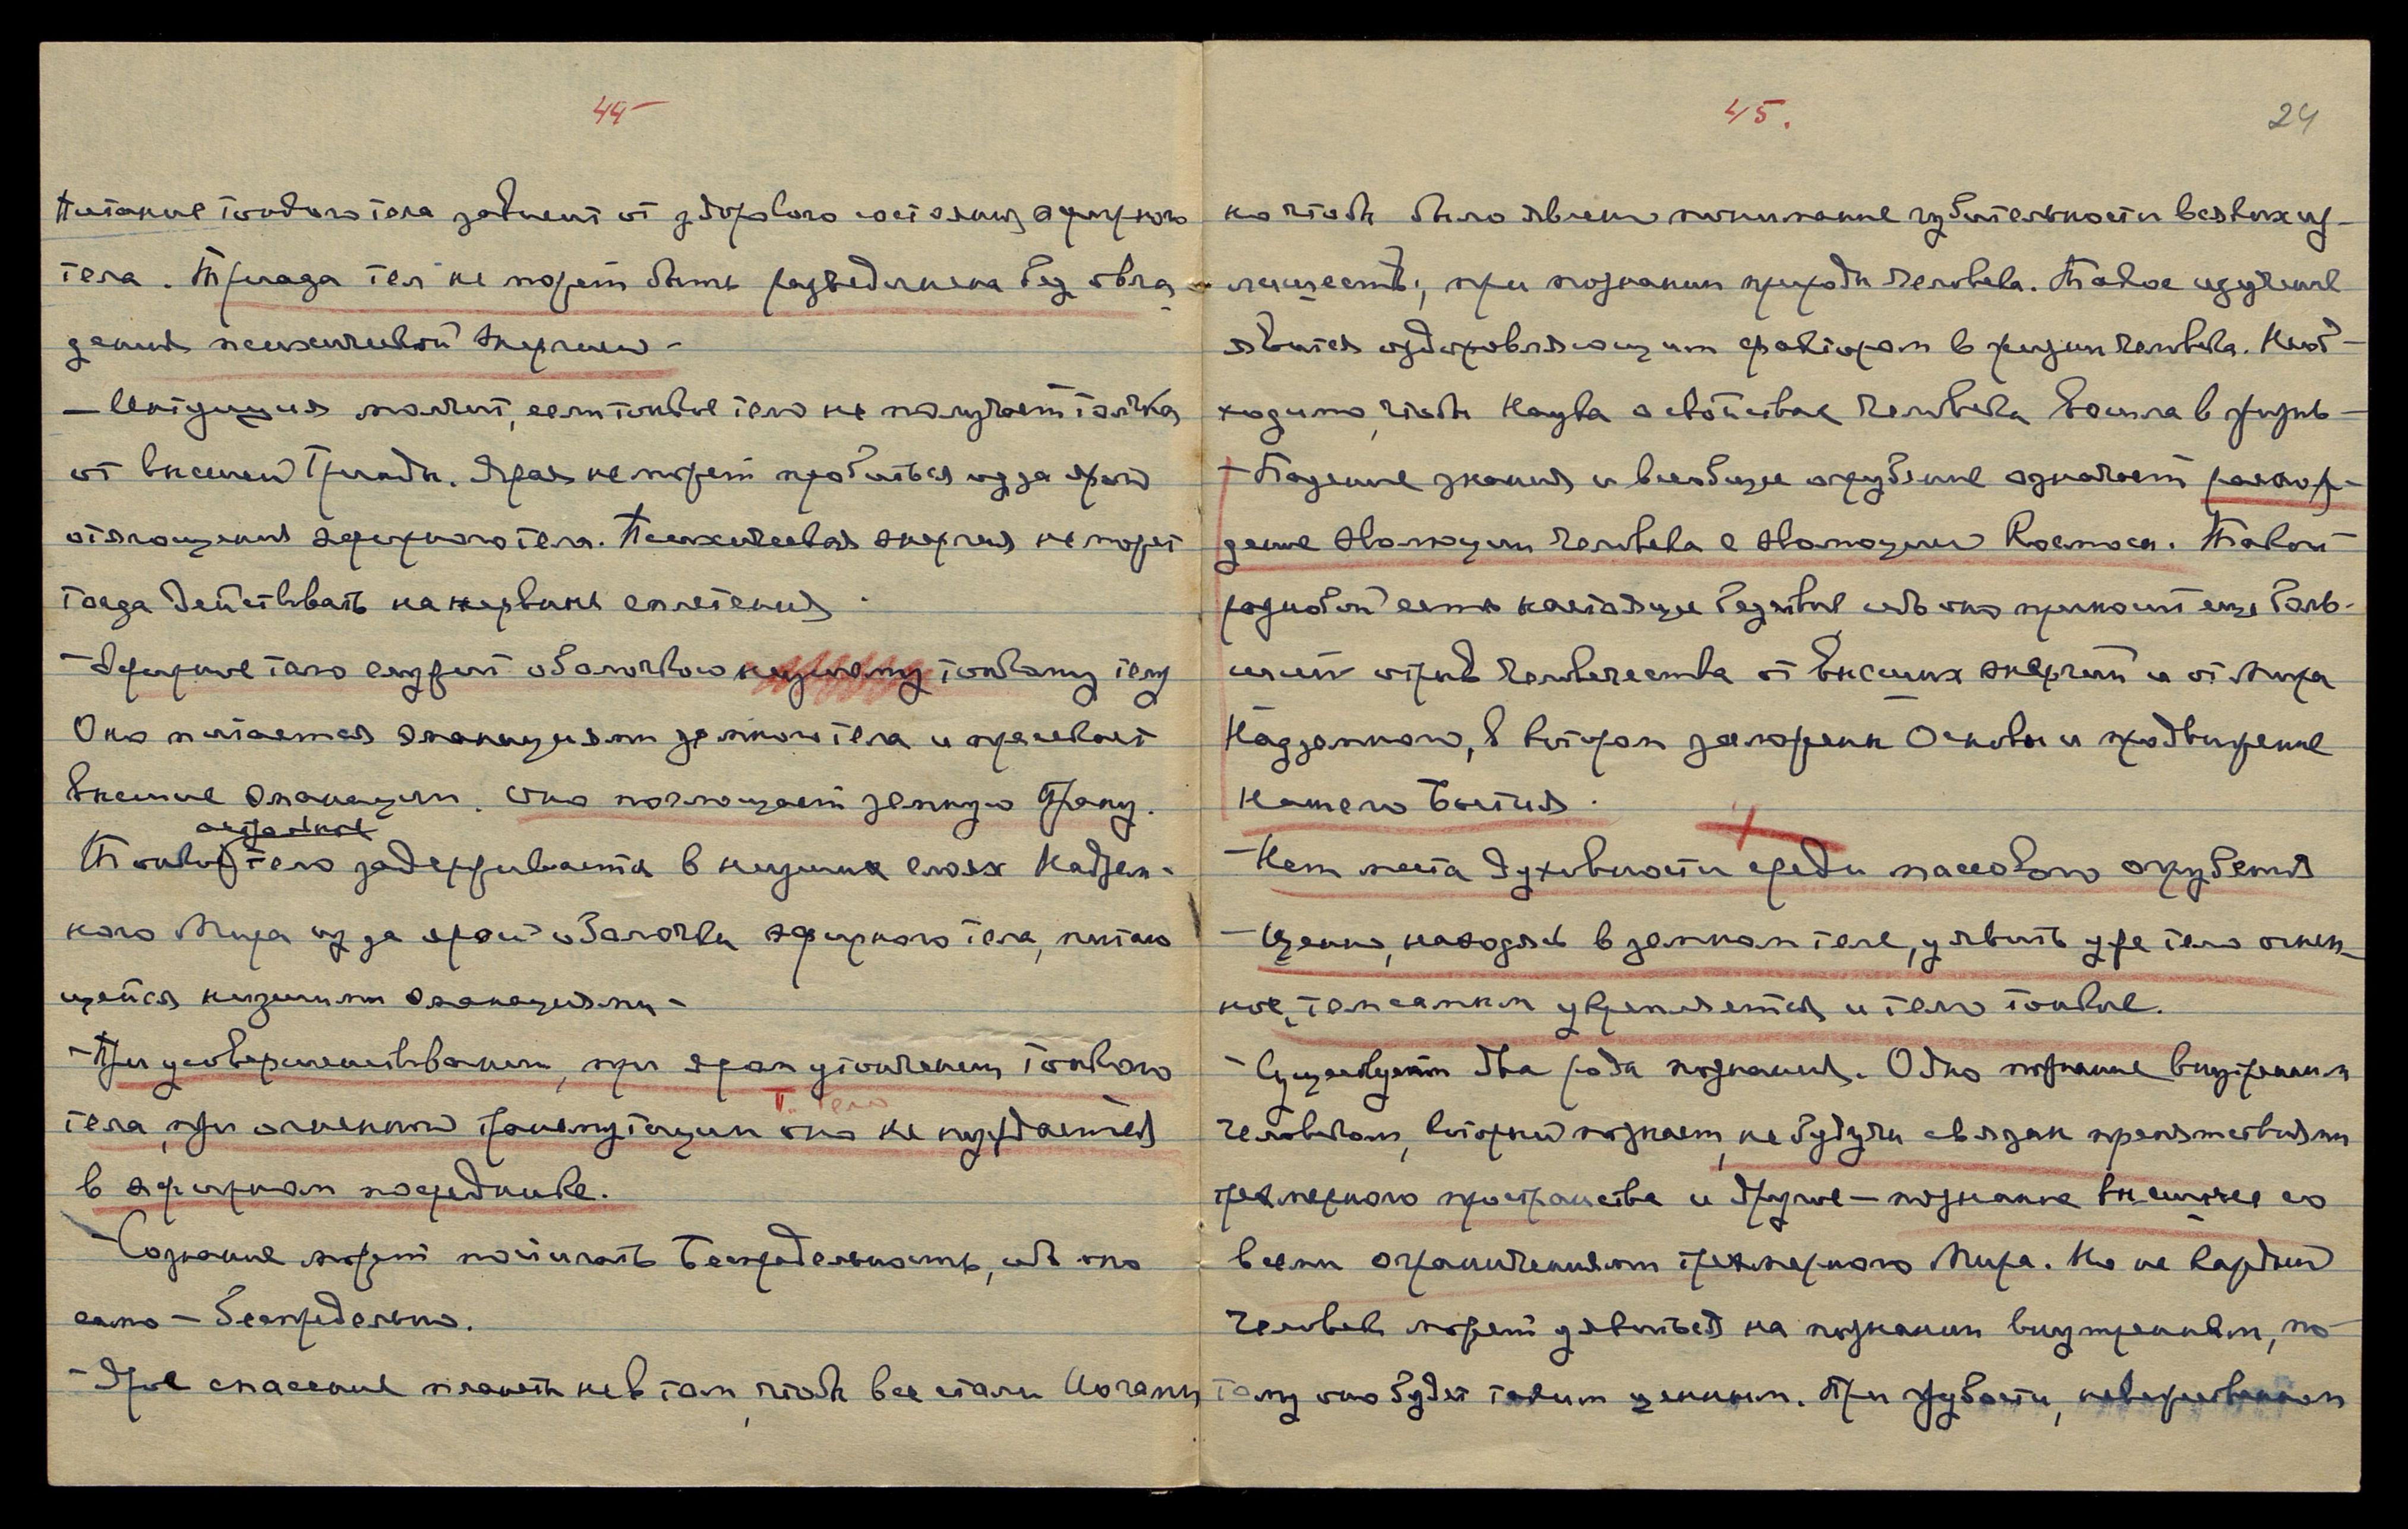 44
Питание тонкого тела зависит от здорового состояния эфирного
тела. Триада тел не может быть разъединена без овла-
дения психической энергией –
– Интуиция молчит, если тонкое тело не получает толчка
от высшей Триады. Ярая не может пробиться из за ярой
отягощения эфирного тела. Психическая энергия не может
тогда действовать на нервные сплетения.
– Эфирное тело служит оболочкою низшему тонкому телу
Оно питается эманациями земного тела и пресекает
высшие эманации. Оно поглощает земную Прану.
астральное
Тонкое тело задерживается в низших слоях Надзем-
ного Мира из за ярой оболочки эфирного тела, питаю
щейся низшими эманациями –
– При усовершенствовании, при яром утончении тонкого
Т. тело
тела, при огненной трансмутации оно не нуждается
в эфирном посреднике.
– Сознание может постигать Беспредельность, ибо оно
само – беспредельно.
– Ярое спасение планеты не в том, чтобы все стали Иогами
45.
24
но чтобы было явлено понимание губительности всяких из-
лишеств, при познании природы человека. Такое изучение
явится оздоровляющим фактором в жизни человека. Необ-
ходимо, чтобы Наука о свойствах человека вошла в жизнь –
– Падение знания и всеобщее огрубение означает растор-
дение эволюции человека с эволюцией Космоса. Такой
разнобой есть настоящее бедствие ибо оно приносит еще боль-
ший отрыв человечества от высших энергий и от Мира
Надземного, в котором заложены Основы и продвижение
нашего Бытия.
– Нет места духовности среди массового огрубения
– Ценно, находясь в земном теле, уявить уже тело огнен-
ное, тем самым укрепляется и тело тонкое.
– Существует два рода познания. Одно познание внутренним
человеком, который познает, не будучи связан препятствиями
трехмерного пространства и другое – познание внешнее со
всеми ограничениями трехмерного Мира. Но не каждый
человек может уявиться на познании внутреннем, по
тому оно будет таким ценным. При грубости, невежественном